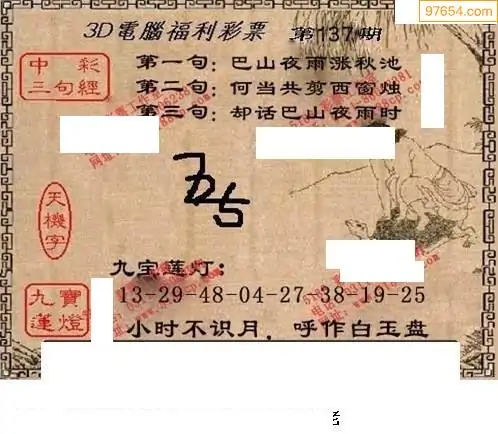 97654.com
3D電腦福利彩票 第137期
中彩三句經
第一句：巴山夜雨涨秋池
第二句：何当共剪西窗烛
第三句：却话巴山夜雨时
天機字
九宝莲灯：
九寶蓮燈
13-29-48-04-27-38-19-25
小时不识月，呼作白玉盘